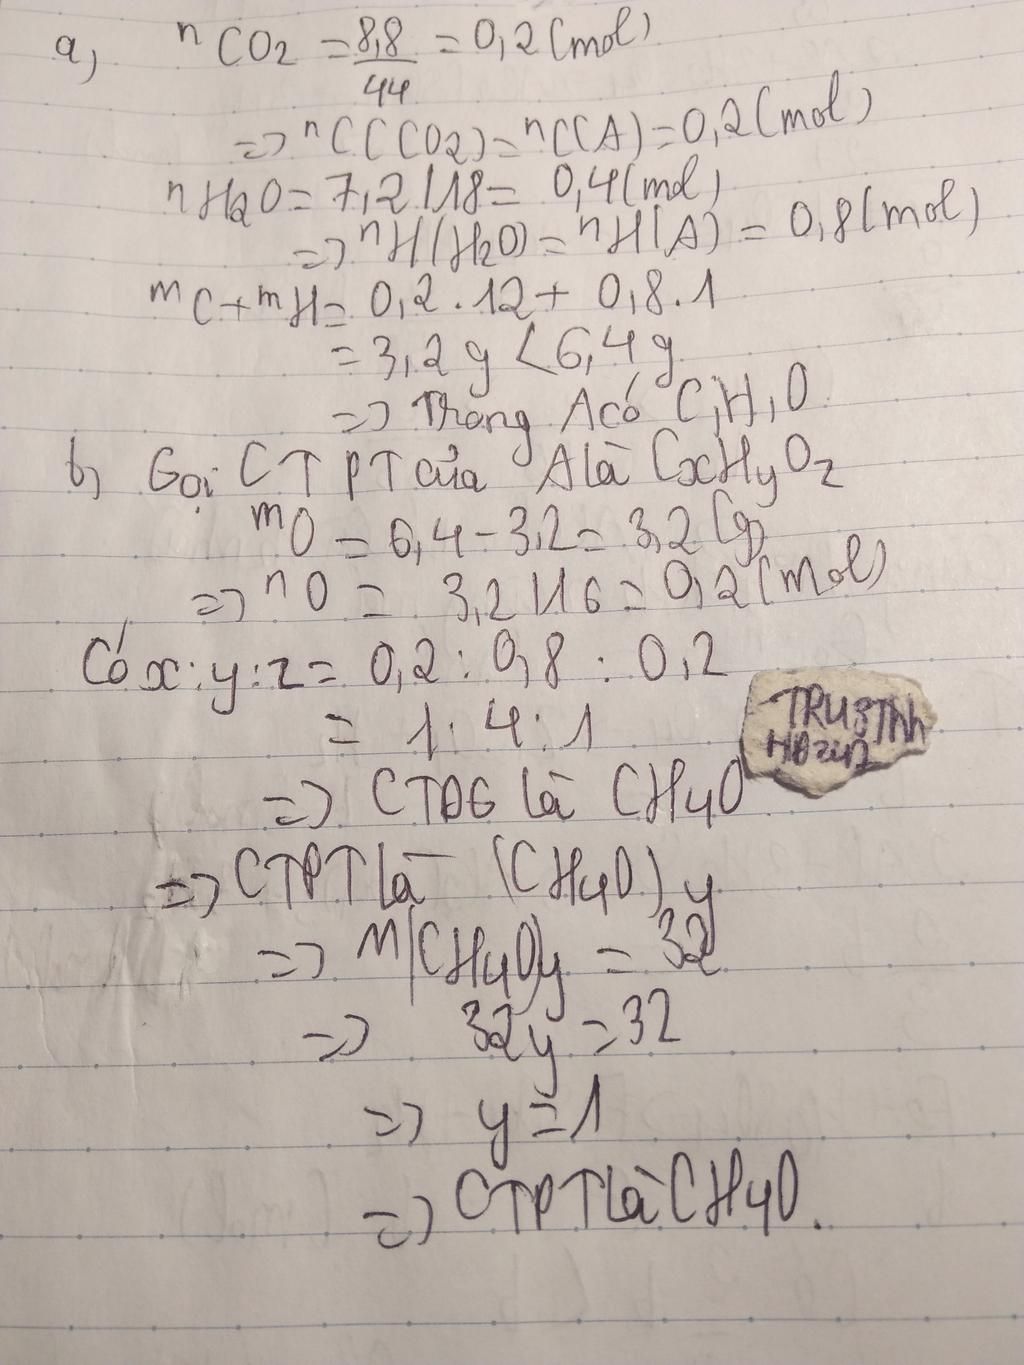 a, nCO2 = 8,8/44 = 0,2 (mol)
=> nC(CO2) = nC(A) = 0,2 (mol)
nH2O = 7,2/18 = 0,4 (mol)
=> nH(H2O) = nH(A) = 0,8 (mol)
mC + mH = 0,2 . 12 + 0,8 . 1
= 3,2 g < 6,4 g
=> Trong A có C,H,O
b, Gọi CTPT của A là CxHyOz
mO = 6,4 - 3,2 = 3,2 (g)
=> nO = 3,2/16 = 0,2 (mol)
Có x:y:z = 0,2 : 0,8 : 0,2
= 1:4:1
=> CTĐG là CH4O
=> CTPT là (CH4O)y
=> M(CH4O)y = 32
=> 32y = 32
=> y = 1
=> CTPT là CH4O.